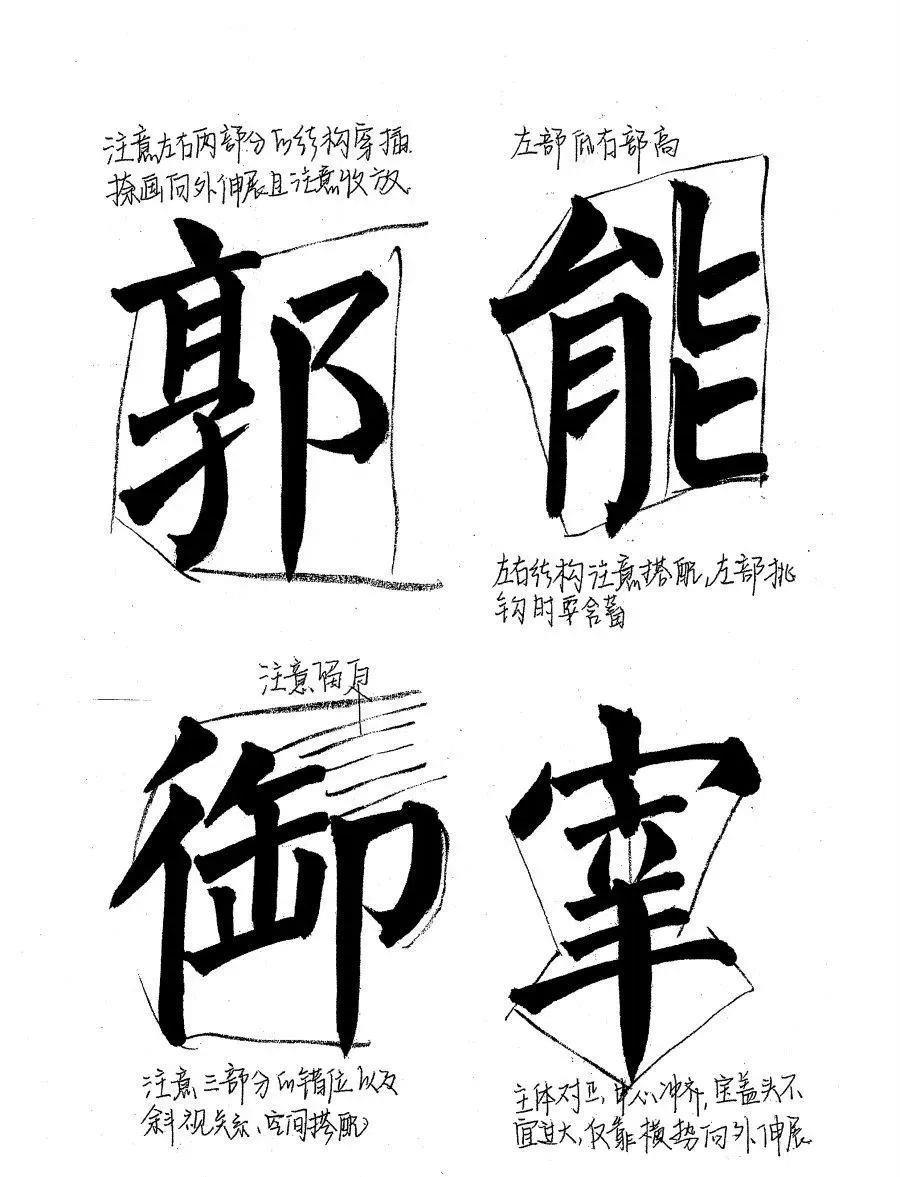 注意左右两部分的结构穿插.
捺画向外伸展且注意收放.
郭
左部低右部高
能
左右结构注意搭配,左部挑
钩时要含蓄
注意隔肩
御
注意三部分的错位以及
斜视关系、空间搭配
宰
主体对正,中心冲齐,宝盖头不
宜过大,仅靠横势向外伸展.